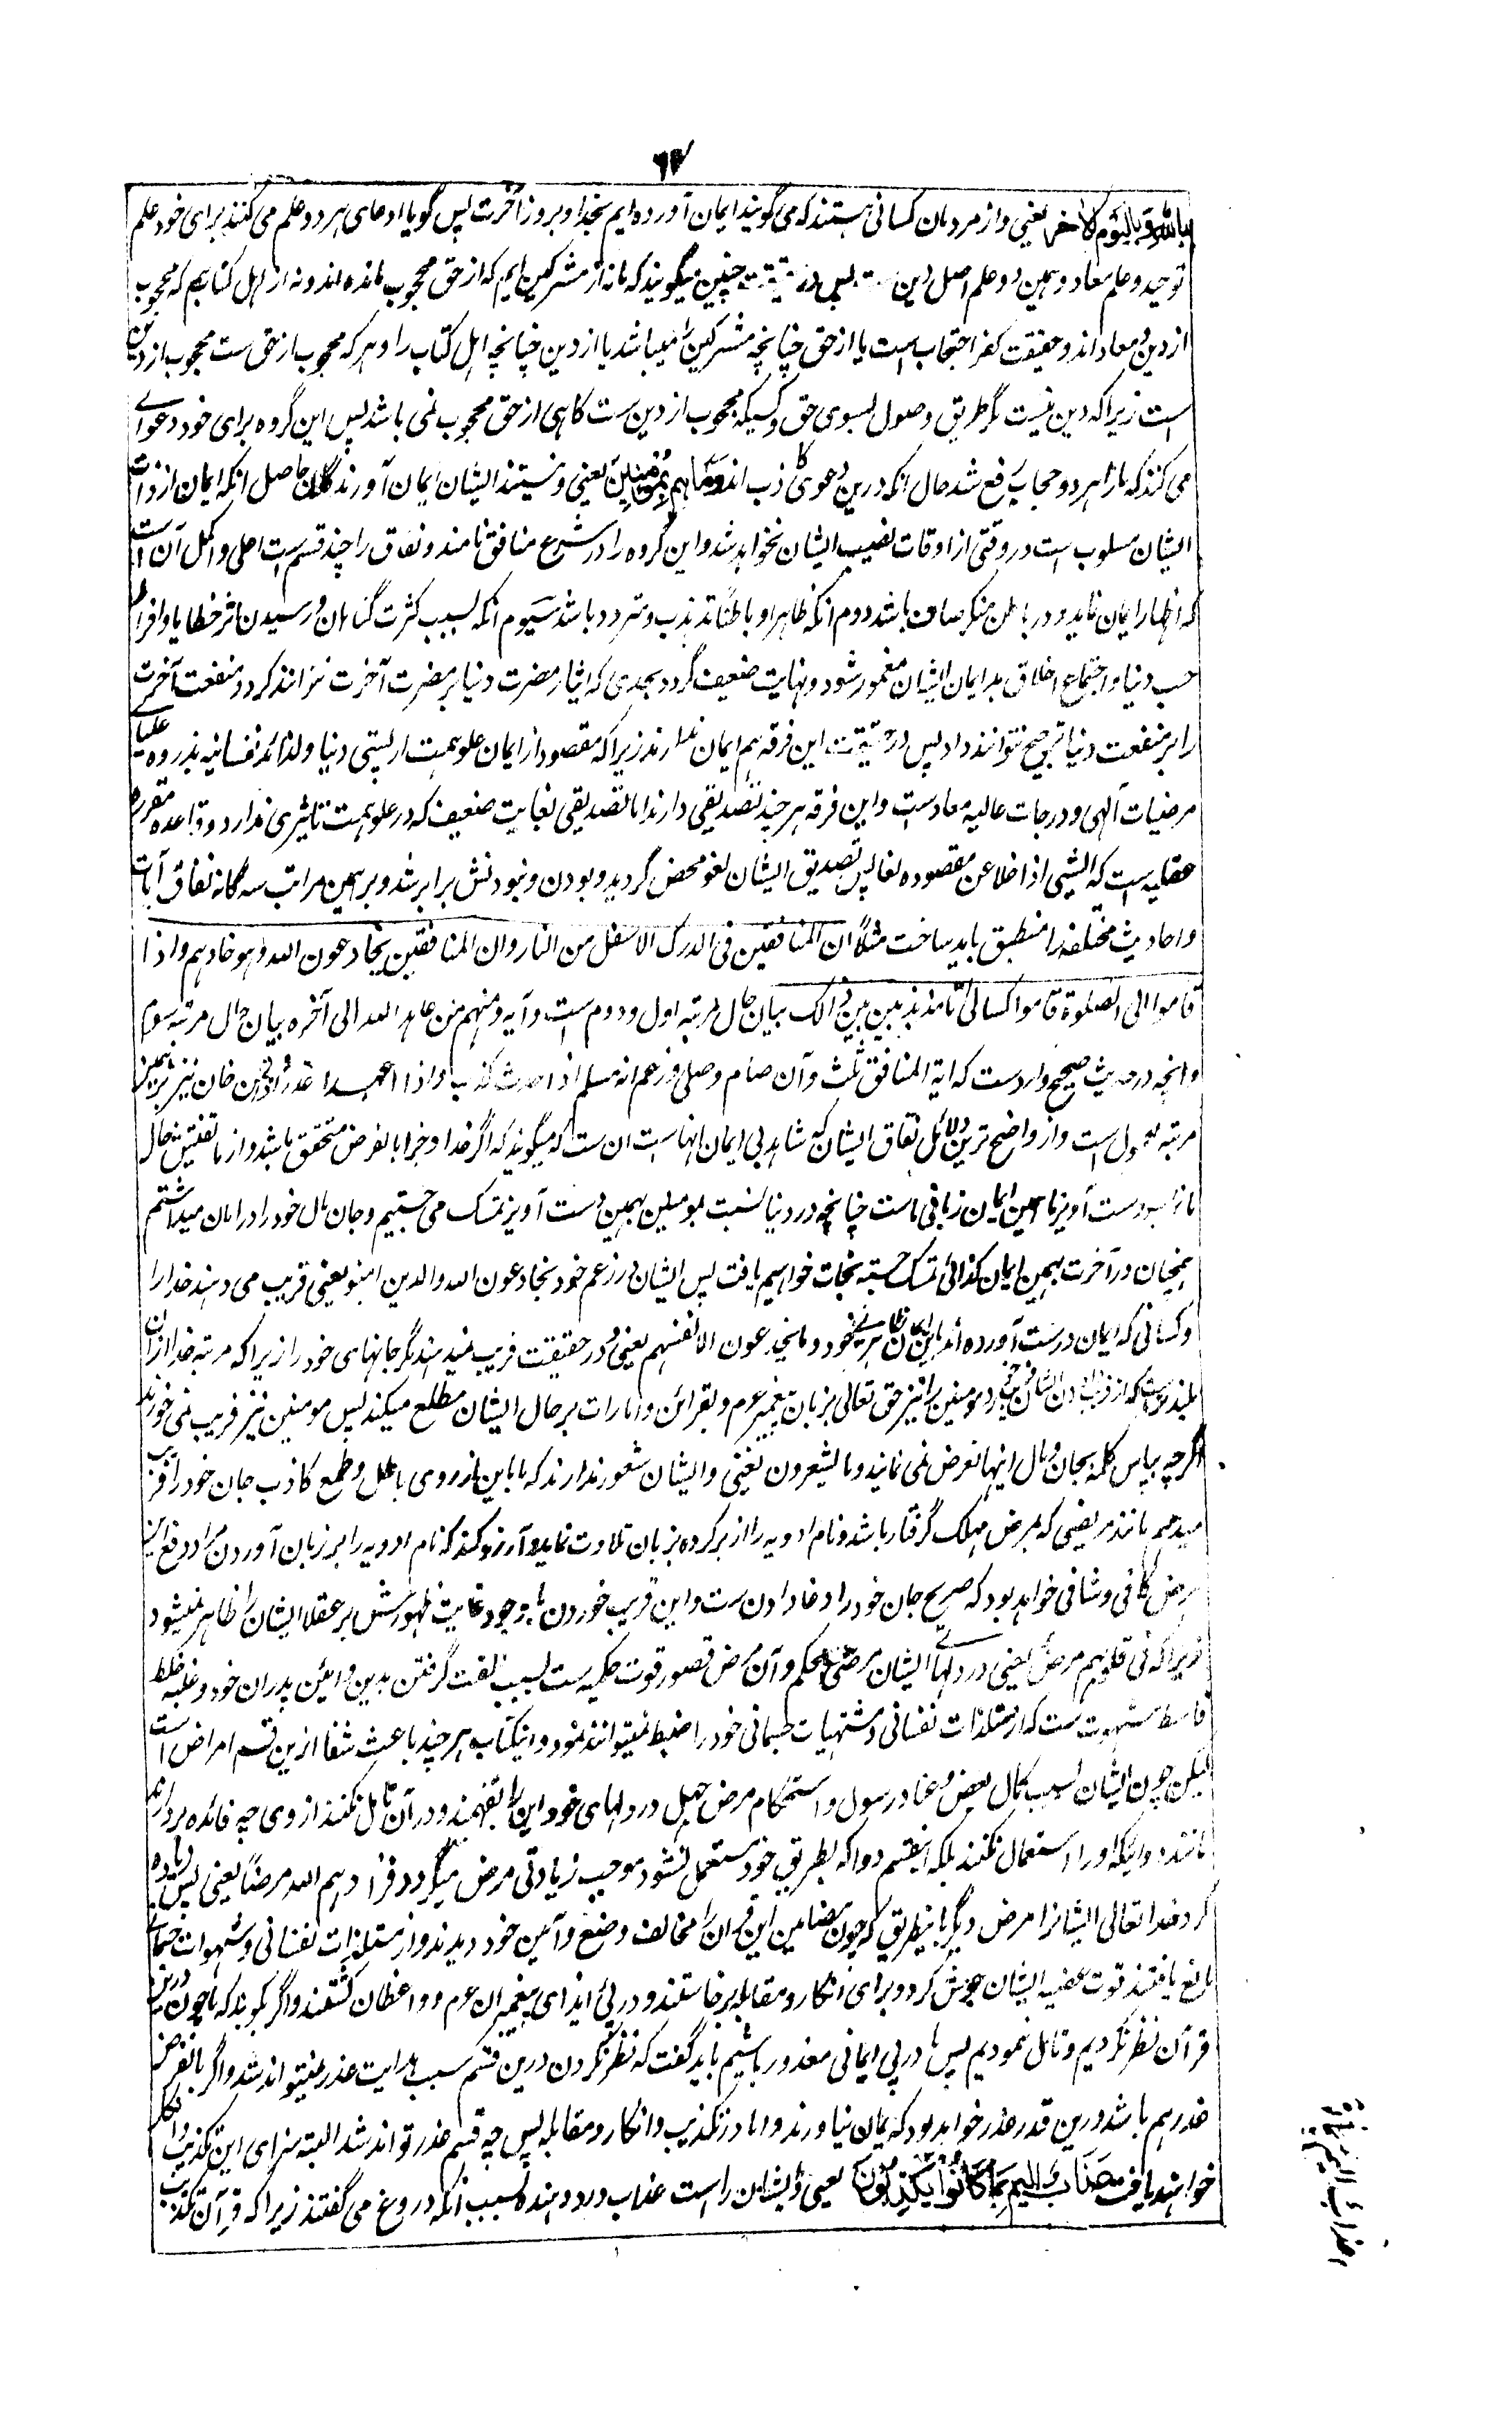 بالله وبالیوم الاخر یعنی و از مردمان کسانی هستند که می گویند ایمان آورده ایم بخدا و بروز آخرت پس گویا ادعای هر دو علم می کنند برای خود علم
توحید و علم معاد و همین دو علم اصل دین ست پس در حقیقت چنین میگویند که ما نه از مشرکین ایم که از حق محجوب مانده اند و نه از اهل کتابیم که محجوب
از دین و معاد اند و حقیقت کفر احتجاب ست یا از حق چنانچه مشرکین را میباشد یا از دین چنانچه اهل کتاب را و هر که محجوب از حق ست محجوب از دین
است زیرا که دین نیست مگر طریق وصول بسوی حق و کسیکه محجوب از دین ست گاهی از حق محجوب نمی باشد پس این گروه برای خود دعوای
می کنند که ما را هر دو حجاب رفع شد حال آنکه درین دعوی کاذب اند وما هم بمؤمنین یعنی و نیستند ایشان ایمان آورندگان حاصل آنکه ایمان از ذات
ایشان مسلوب ست در وقتی از اوقات نصیب ایشان نخواهد شد و این گروه را در شرع منافق نامند و نفاق را چند قسم ست اصلی و اکمل آن است
که اظهار ایمان نماید و در باطن منکر صاف باشد دوم آنکه ظاهرا و باطنا تذبذب و متردد باشد سیوم آنکه بسبب کثرت گناهان و رسیدن اثر خطایا و افراط
حب دنیا و اجتماع اخلاق بد ایمان ایشان مغمور شود و نهایت ضعیف گردد بحدی که ایثار مضرت دنیا بر مضرت آخرت نتوانند کرد و منفعت آخرت
را بر منفعت دنیا ترجیح نتوانند داد پس در حقیقت این فرقه هم ایمان ندارند زیرا که مقصود از ایمان علو همت از پستی دنیا و لذائذ نفسانیه بذروه علیای
مرضیات آلهی و درجات عالیه معاد ست و این فرقه هر چند تصدیقی دارند اما تصدیقی بغایت ضعیف که در علو همت تاثیری ندارد و قاعده مقرره
عقلیه ست که الشیئ اذا خلا عن مقصوده لغا پس تصدیق ایشان لغو محض گردید و بودن و نبودنش برابر شد و بر همین مراتب سه گانه نفاق آیات
و احادیث مختلفه را منطبق باید ساخت مثلا ان المنافقین فی الدرک الاسفل من النار وان المنافقین یخادعون الله وهو خادعهم واذا
قاموا الی الصلوة قاموا کسالی تا مذبذبین بین ذالک بیان حال مرتبه اول و دوم ست و آیه ومنهم من عاهد الله الی آخره بیان حال مرتبه سوم
و آنچه در حدیث صحیح وارد ست که آیة المنافق ثلث وان صام وصلی وزعم انه مسلم اذا حدث کذب واذا اعهد غدر واذا اؤتمن خان نیز بر همین
مرتبه محمول ست و از واضح ترین دلائل نفاق ایشان که شاهد بی ایمانی انهاست ان ست که میگویند که اگر خدا و جزا بالفرض متحقق باشد و از ما تفتیش حال
ما نماید دست آویز ما همین ایمان زبانی ماست چنانچه در دنیا نسبت بمومنین بهمین دست آویز تمسک می جستیم و جان مال خود را در امان میداشتم
همچنان در آخرت بهمین ایمان کذائی تمسک جسته نجات خواهیم یافت پس ایشان در زعم خود یخادعون الله والذین امنوا یعنی فریب می دهند خدا را
و کسانی که ایمان درست آورده اند باین ایمان ظاهری خود وما یخدعون الا انفسهم یعنی و در حقیقت فریب نمیدهند مگر جانهای خود را زیرا که مرتبه خدا ازان
بلند ترست که از فریب دادن ایشان فریب خورد و مومنین را نیز حق تعالی بزبان پیغمبر عوم و بقرائن و امارات بر حال ایشان مطلع میکند پس مومنین نیز فریب نمی خورند
اگرچه بپاس کلمه بجان و مال اینها تعرض نمی نمایند وما یشعرون یعنی و ایشان شعور ندارند که ما باین ارزوی باطل و طمع کاذب جان خود را فریب
میدهیم مانند مریضی که بمرض مهلک گرفتار باشد و نام ادویه را از بر کرده بزبان تلاوت نماید و آرزو کند که نام ادویه را بر زبان آوردن مرا دفع این
مرض کافی و شافی خواهد بود که صریح جان خود را دغا دادن ست و این فریب خوردن با وجود غایت ظهورش بر عقلا ایشان را ظاهر نمیشود
زیرا که فی قلوبهم مرض یعنی در دلهای ایشان مرضی محکم و آن مرض قصور قوت حکمیه ست بسبب الفت گرفتن بدین و آئین پدران خود و غلبه خلط
فاسد شهوت ست که از مستلذات نفسانی و مشتهیات جسمانی خود را ضبط نمیتوانند نمود و اینکتاب هر چند باعث شفا ازین قسم امراض است
لیکن چون ایشان بسبب کمال بغض و عناد رسول و استحکام مرض جهل در دلهای خود این را نفهمند و در آن تامل نکنند از وی چه فائده بردارند
مانند دوائیکه اورا استعمال نکنند بلکه اینقسم دوا که بطریق خود مستعمل نشود موجب زیادتی مرض میگردد فزادهم الله مرضا یعنی پس زیاده
کرد خدا تعالی ایشانرا مرض دیگر باینطریق که چون مضامین این قرآن را مخالف وضع و آئین خود دیدند و از مستلذات نفسانی و شهوات جسمانی
مانع یافتند قوت غضبیه ایشان جوش کرد و برای انکار و مقابله برخاستند و در پئ ایذای پیغمبران عوم و واعظان گشتند و اگر بگویند که ما چون درین
قرآن نظر نکردیم و تامل ننمودیم پس ما در بی ایمانی معذور باشیم باید گفت که نظر نکردن درین قسم سبب هدایت عذر نمیتواند شد و اگر بالفرض
عذر هم باشد درین قدر عذر خواهد بود که ایمان نیاورند و اما در تکذیب و انکار و مقابله پس چه قسم عذر تواند شد البته سزای این تکذیب و انکار
خواهند یافت عذاب الیم بما کانوا یکذبون یعنی و ایشان راست عذاب درد دهنده بسبب آنکه دروغ می گفتند زیرا که قرآن تکذیب